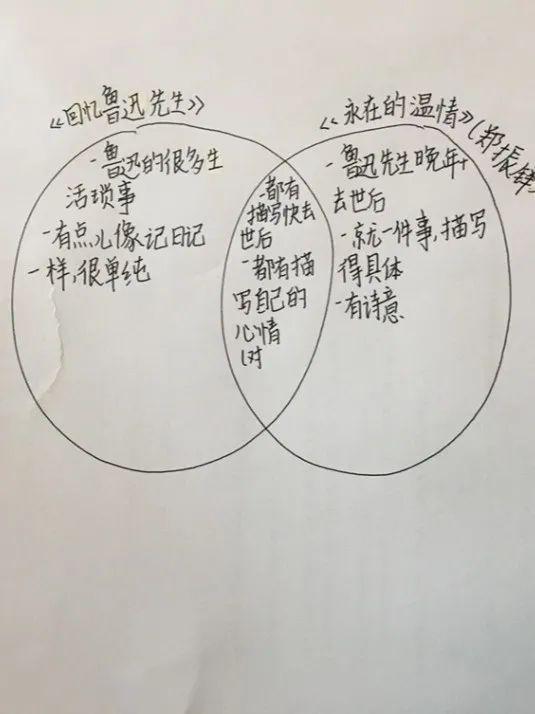 《回忆鲁迅先生》
-鲁迅的很多生
活琐事
-有点儿像记日记
一样,很单纯
-都有
描写快去
世后
-都有描
写自己的
心情
《永在的温情》(郑振铎)
-鲁迅先生晚年+
去世后
-就一件事,描写
得具体
-有诗意